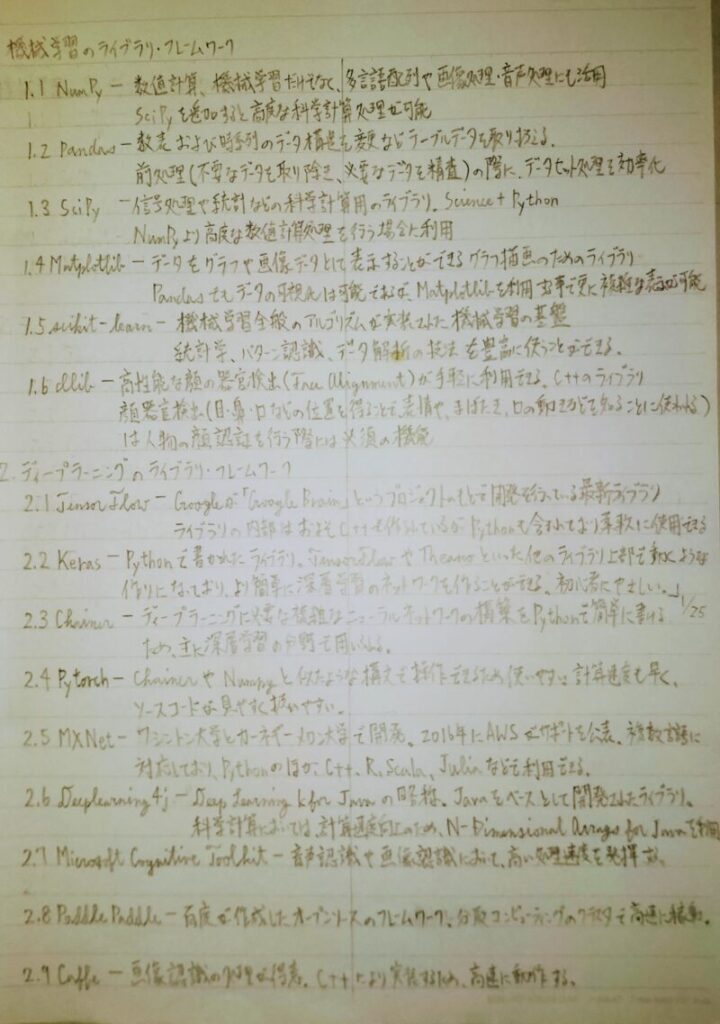 機械学習のライブラリ・フレームワーク
1.1 NumPy － 数値計算、機械学習だけでなく、多言語配列や画像処理・音声処理にも活用
SciPyを追加すると高度な科学計算処理が可能
1.2 Pandas － 数表および時系列のデータ構造を変更などテーブルデータを取り扱える。
前処理(不要なデータを取り除き、必要なデータを精査)の際に、データセット処理を効率化
1.3 SciPy － 信号処理や統計などの科学計算用のライブラリ。Science + Python
NumPyより高度な数値計算処理を行う場合に利用
1.4 Matplotlib － データをグラフや画像データとして表示することができるグラフ描画のためのライブラリ
Pandasでもデータの可視化は可能であるが、Matplotlibを利用する事で更に複雑な表示が可能
1.5 scikit-learn － 機械学習全般のアルゴリズムが実装された機械学習の基盤
統計学、パターン認識、データ解析の技法を豊富に使うことができる。
1.6 dlib － 高性能な顔の器官検出(Face Alignment)が手軽に利用できる。C++のライブラリ
顔器官検出(目・鼻・口などの位置を得ることで、表情や、まばたき、口の動きなどを知ることに使われる)
は人物の顔認証を行う際には必須の機能
2. ディープラーニングのライブラリ・フレームワーク
2.1 TensorFlow － Googleが「Google Brain」というプロジェクトのもとで開発を行っている最新ライブラリ
ライブラリの内部はおよそC++で作られているがPythonも含まれており柔軟に使用できる
2.2 Keras － Pythonで書かれたライブラリ。TensorFlowやTheanoといった他のライブラリ上部で動くような
作りになっており、より簡単に深層学習のネットワークを作ることができる。初心者にやさしい。」1/25
2.3 Chainer － ディープラーニングに必要な複雑なニューラルネットワークの構築をPythonで簡単に書ける
ため、主に深層学習の分野で用いられる。
2.4 Pytorch － ChainerやNumpyと似たような構文で操作できるため使いやすい。計算速度も早く、
ソースコードは見やすく扱いやすい。
2.5 MXNet － ワシントン大学とカーネギーメロン大学で開発。2016年にAWSがサポートを公表。複数言語に
対応しており、Pythonのほか、C++、R、Scala、Juliaなども利用できる。
2.6 Deeplearning4j － Deep Learning for Javaの略称。Javaをベースとして開発されたライブラリ。
科学計算においては、計算速度向上のため、N-Dimensional Arrays for Javaを利用
2.7 Microsoft Cognitive Toolkit － 音声認識や画像認識において、高い処理速度を発揮する。
2.8 PaddlePaddle － 百度が作成したオープンソースのフレームワーク。分散コンピューティングのクラスタで高速に稼動。
2.9 Caffe － 画像認識の処理が得意。C++により実装するため、高速に動作する。